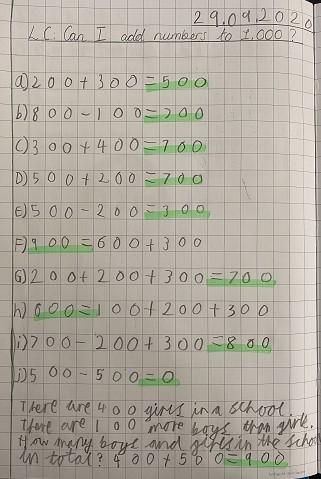 29.09.2020
L.C: Can I add numbers to 1,000?
a) 200 + 300 = 500
b) 800 - 100 = 700
c) 300 + 400 = 700
D) 500 + 200 = 700
E) 500 - 200 = 300
F) 900 = 600 + 300
G) 200 + 200 + 300 = 700
h) 600 = 100 + 200 + 300
i) 700 - 200 + 300 = 800
j) 500 - 500 = 0
There are 400 girls in a school.
There are 100 more boys than girls.
How many boys and girls in the school
in total? 400 + 500 = 900